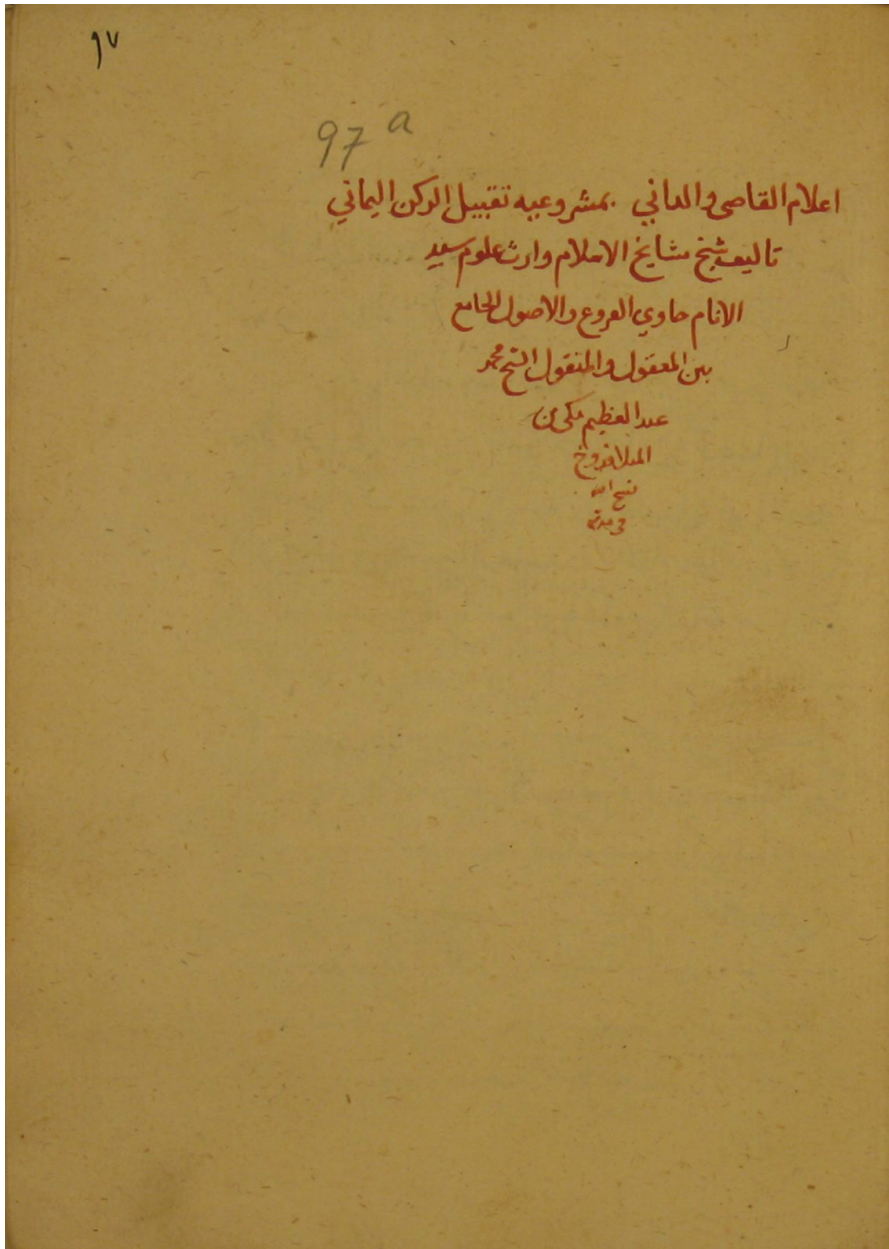 ٩٧
97 a
اعلام القاصى والدانى بمشروعيه تقبيل الركن اليمانى
تاليف شيخ مشايخ الاسلام وارث علوم سيد
الانام حاوى الفروع والاصول الجامع
بين المعقول والمنقول الشيخ محمد
عبد العظيم مكى بن
المنلا فروخ
فسح الله
فى مدته